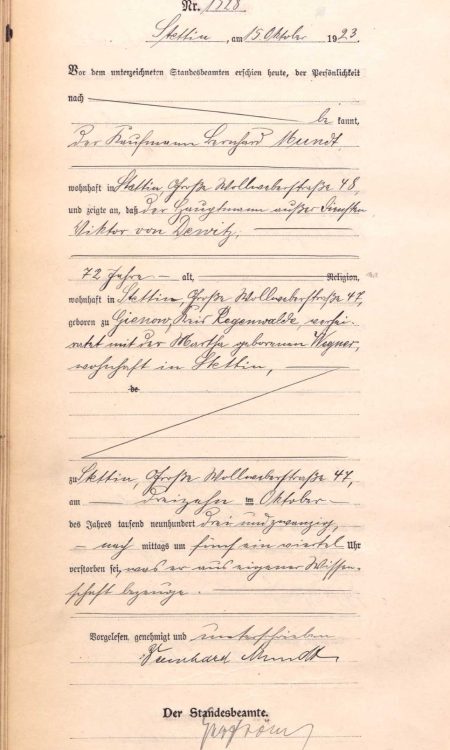 Nr. 1728
Stettin, am 15. Oktober 1923
Vor dem unterzeichneten Standesbeamten erschien heute, der Persönlichkeit
nach be kannt,
der Kaufmann Bernhard Mundt,
wohnhaft in Stettin, Große Wollweberstraße 48,
und zeigte an, daß der Hauptmann außer Diensten
Viktor von Dewitz,
72 Jahre alt, Religion,
wohnhaft in Stettin, Große Wollweberstraße 47,
geboren zu Gienow, Kreis Regenwalde, verhei-
ratet mit der Martha geborenen Wegner,
wohnhaft in Stettin,
de
zu Stettin, Große Wollweberstraße 47,
am dreizehn ten Oktober
des Jahres tausend neunhundert drei und zwanzig,
nach mittags um fünf ein viertel Uhr
verstorben sei, was er aus eigener Wissen-
schaft bezeuge.
Vorgelesen, genehmigt und unterschrieben
Bernhard Mundt
Der Standesbeamte.